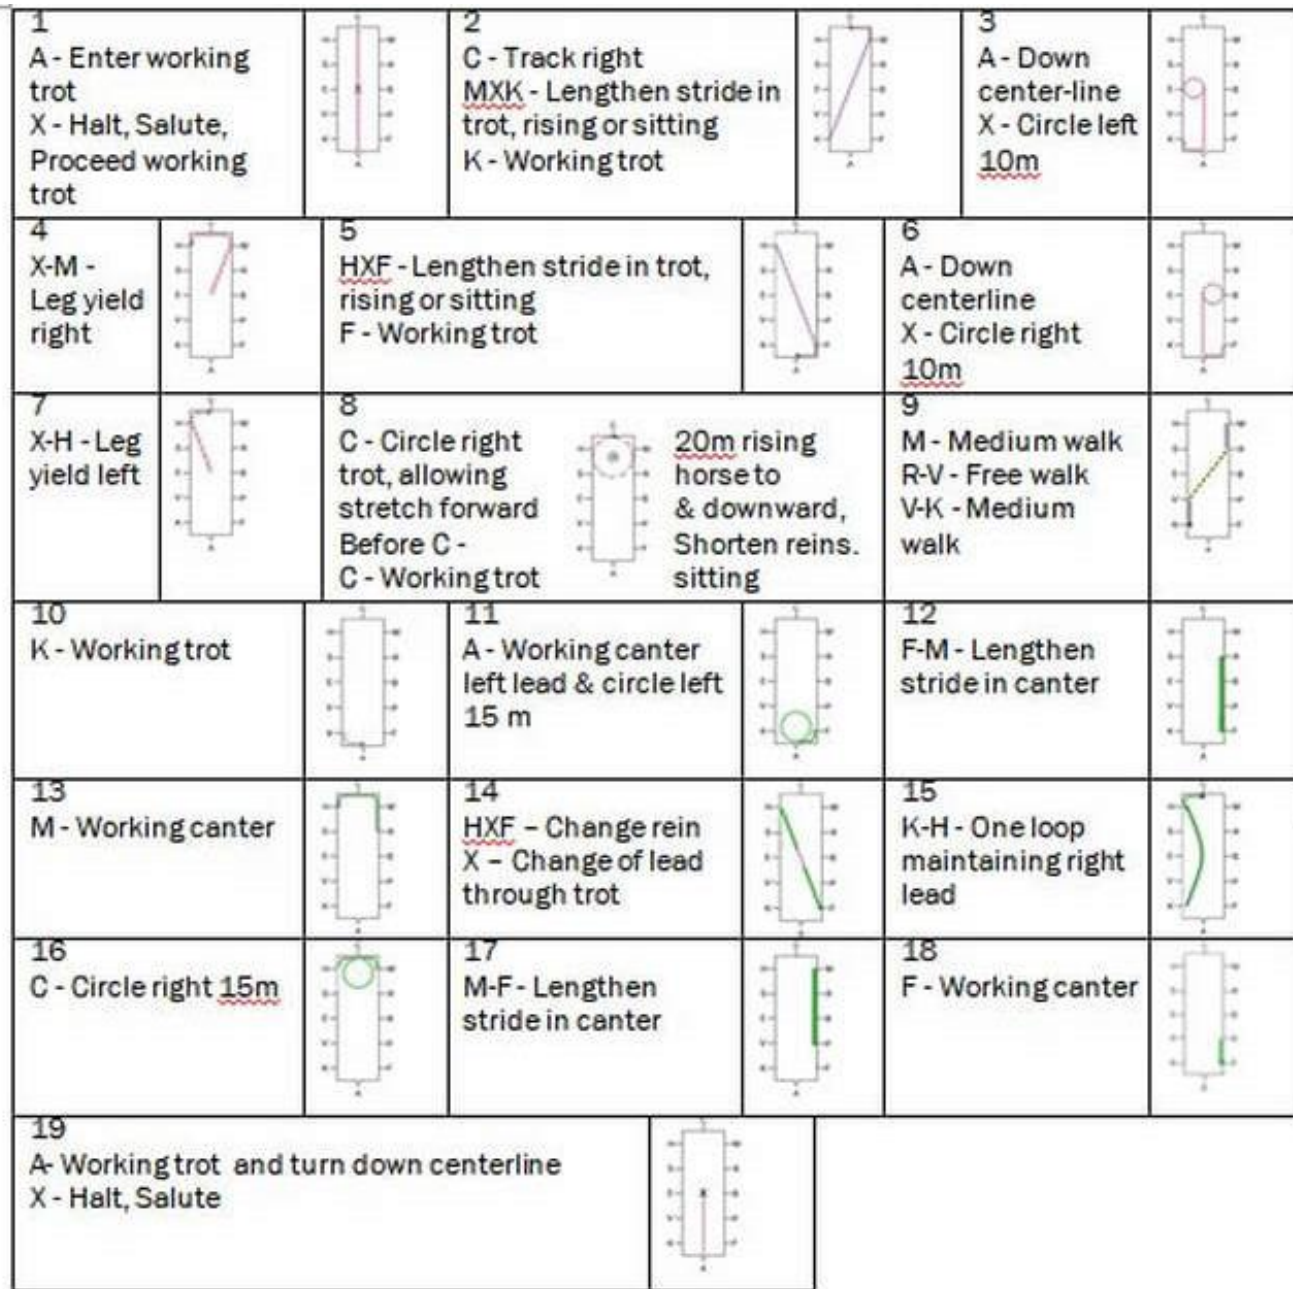 1
A - Enter working
trot
X - Halt, Salute,
Proceed working
trot
2
C - Track right
MXK - Lengthen stride in
trot, rising or sitting
K - Working trot
3
A - Down
center-line
X - Circle left
10m
4
X-M -
Leg yield
right
5
HXF - Lengthen stride in trot,
rising or sitting
F - Working trot
6
A - Down
centerline
X - Circle right
10m
7
X-H - Leg
yield left
8
C - Circle right
trot, allowing
stretch forward
Before C -
C - Working trot
20m rising
horse to
& downward,
Shorten reins.
sitting
9
M - Medium walk
R-V - Free walk
V-K - Medium
walk
10
K - Working trot
11
A - Working canter
left lead & circle left
15 m
12
F-M - Lengthen
stride in canter
13
M - Working canter
14
HXF – Change rein
X – Change of lead
through trot
15
K-H - One loop
maintaining right
lead
16
C - Circle right 15m
17
M-F - Lengthen
stride in canter
18
F - Working canter
19
A- Working trot and turn down centerline
X - Halt, Salute